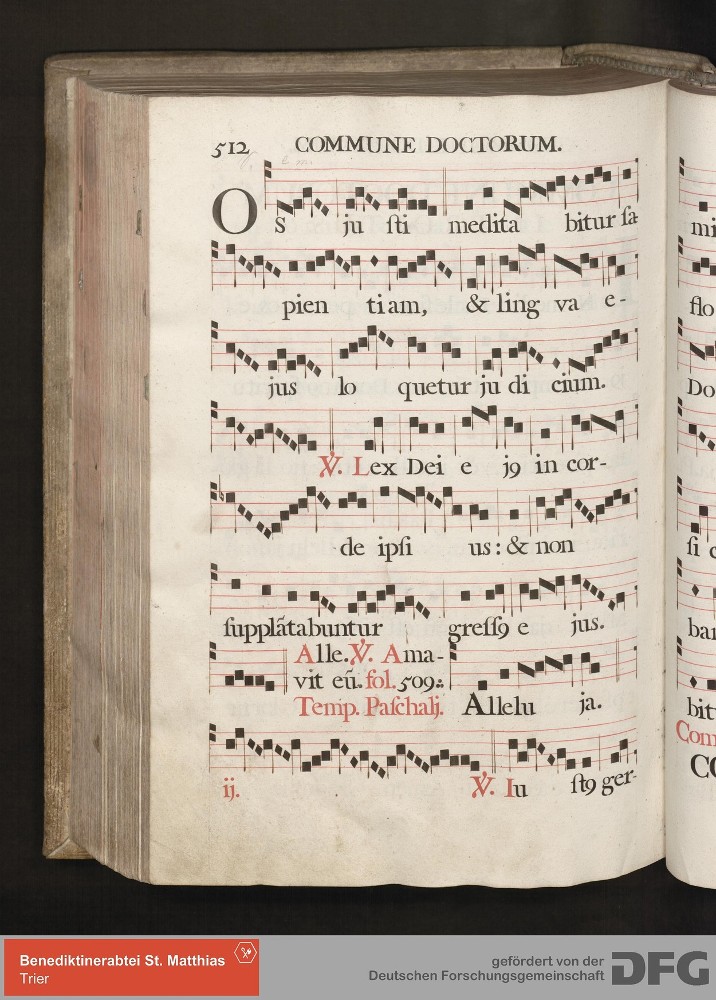 512 COMMUNE DOCTORUM.
OS ju sti medita bitur sa-
pien tiam, & ling va e-
jus lo quetur ju di cium.
℣. Lex Dei e j9 in cor-
de ipsi us: & non
supplātabuntur gress9 e jus.
Alle. ℣. Ama-
vit eū. fol. 509.
Temp. Paschalj. Allelu ja.
ij. ℣. Iu st9 ger-
mi
flo
Do
si c
ban
bit
Com
CO
Benediktinerabtei St. Matthias
Trier
gefördert von der
Deutschen Forschungsgemeinschaft
DFG